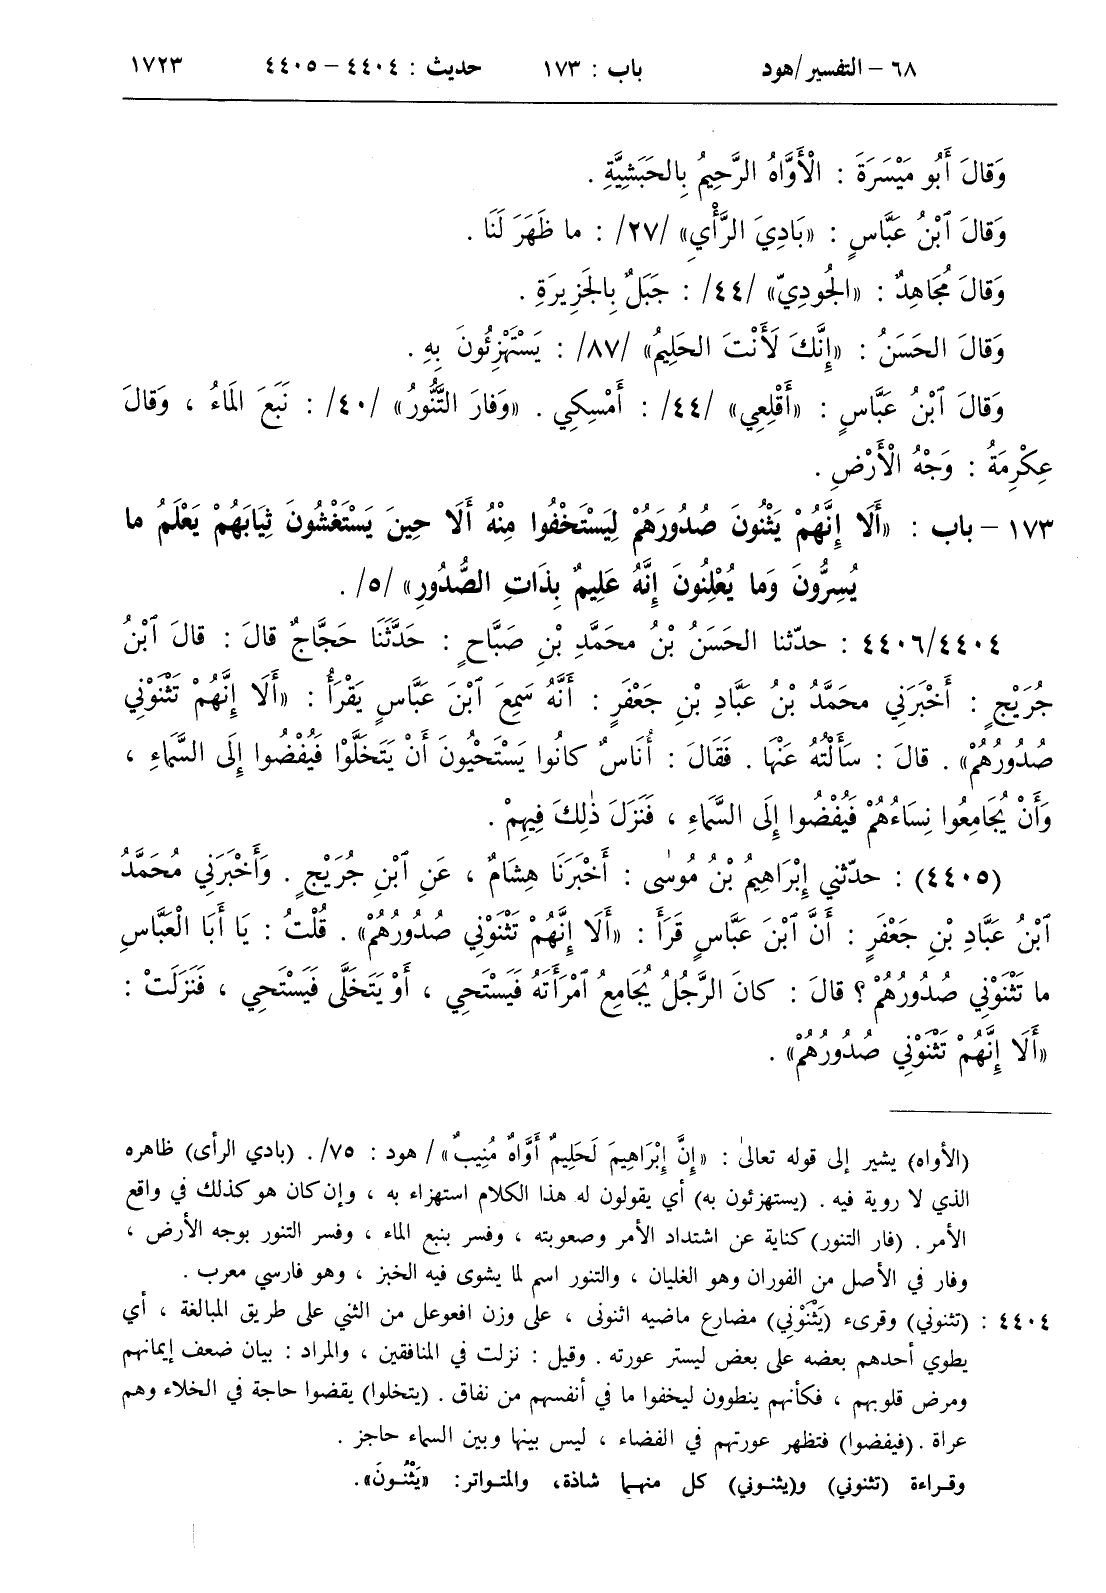 ٦٨ – التفسير/هود باب : ١٧٣ حديث : ٤٤٠٤ – ٤٤٠٥ ١٧٢٣
وَقالَ أَبُو مَيْسَرَةَ : الْأَوَّاهُ الرَّحِيمُ بِالحَبَشِيَّةِ .
وَقالَ ٱبْنُ عَبَّاسٍ : «بَادِيَ الرَّأْيِ» /٢٧/ : ما ظَهَرَ لَنَا .
وَقالَ مُجَاهِدٌ : «الجُودِيّ» /٤٤/ : جَبَلٌ بِالجَزِيرَةِ .
وَقالَ الحَسَنُ : «إِنَّكَ لَأَنْتَ الحَلِيمُ» /٨٧/ : يَسْتَهْزِئُونَ بِهِ .
وَقالَ ٱبْنُ عَبَّاسٍ : «أَقْلِعِي» /٤٤/ : أَمْسِكِي . «وَفارَ التَّنُّورُ» /٤٠/ : نَبَعَ المَاءُ ، وَقالَ
عِكْرِمَةُ : وَجْهُ الْأَرْضِ .
١٧٣ – باب : «أَلَا إِنَّهُمْ يَثْنُونَ صُدُورَهُمْ لِيَسْتَخْفُوا مِنْهُ أَلَا حِينَ يَسْتَغْشُونَ ثِيَابَهُمْ يَعْلَمُ ما
يُسِرُّونَ وَما يُعْلِنُونَ إِنَّهُ عَلِيمٌ بِذَاتِ الصُّدُورِ» /٥/ .
٤٤٠٦/٤٤٠٤ : حدّثنا الحَسَنُ بْنُ محَمَّدِ بْنِ صَبَّاحٍ : حَدَّثَنَا حَجَّاجٌ قالَ : قالَ ٱبْنُ
جُرَيْجٍ : أَخْبَرَنِي محَمَّدُ بْنُ عَبَّادِ بْنِ جَعْفَرٍ : أَنَّهُ سَمِعَ ٱبْنَ عَبَّاسٍ يَقْرَأُ : «أَلَا إِنَّهُمْ تَثْنَوْنِي
صُدُورُهُمْ» . قالَ : سَأَلْتُهُ عَنْهَا . فَقَالَ : أُنَاسٌ كانُوا يَسْتَحْيُونَ أَنْ يَتَخَلَّوْا فَيُفْضُوا إِلَى السَّمَاءِ ،
وَأَنْ يُجَامِعُوا نِسَاءَهُمْ فَيُفْضُوا إِلَى السَّمَاءِ ، فَنَزَلَ ذٰلِكَ فِيهِمْ .
(٤٤٠٥) : حدّثني إِبْرَاهِيمُ بْنُ مُوسٰى : أَخْبَرَنَا هِشَامٌ ، عَنِ ٱبْنِ جُرَيْجٍ . وَأَخْبَرَنِي مُحَمَّدُ
ٱبْنُ عَبَّادِ بْنِ جَعْفَرٍ : أَنَّ ٱبْنَ عَبَّاسٍ قَرَأَ : «أَلَا إِنَّهُمْ تَثْنَوْنِي صُدُورُهُمْ» . قُلْتُ : يَا أَبَا الْعَبَّاسِ
ما تَثْنَوْنِي صُدُورُهُمْ ؟ قالَ : كانَ الرَّجُلُ يُجَامِعُ ٱمْرَأَتَهُ فَيَسْتَحِي ، أَوْ يَتَخَلَّى فَيَسْتَحِي ، فَنَزَلَتْ :
«أَلَا إِنَّهُمْ تَثْنَوْنِي صُدُورُهُمْ» .
(الأواه) يشير إلى قوله تعالى : «إِنَّ إِبْرَاهِيمَ لَحَلِيمٌ أَوَّاهٌ مُنِيبٌ» / هود : ٧٥ /. (بادي الرأى) ظاهره
الذي لا روية فيه . (يستهزئون به) أي يقولون له هذا الكلام استهزاء به ، وإن كان هو كذلك في واقع
الأمر . (فار التنور) كناية عن اشتداد الأمر وصعوبته ، وفسر بنبع الماء ، وفسر التنور بوجه الأرض ،
وفار في الأصل من الفوران وهو الغليان ، والتنور اسم لما يشوى فيه الخبز ، وهو فارسي معرب .
٤٤٠٤ : (تثنوني) وقرىء (يَثْنَوْنِي) مضارع ماضيه اثنونى ، على وزن افعوعل من الثني على طريق المبالغة ، أي
يطوي أحدهم بعضه على بعض ليستر عورته . وقيل : نزلت في المنافقين ، والمراد : بيان ضعف إيمانهم
ومرض قلوبهم ، فكأنهم ينطوون ليخفوا ما في أنفسهم من نفاق . (يتخلوا) يقضوا حاجة في الخلاء وهم
عراة . (فيفضوا) فتظهر عورتهم في الفضاء ، ليس بينها وبين السماء حاجز .
وقراءة (تثنوني) و(يثنوني) كل منهما شاذة، والمتواتر: «يَثْنُونَ».